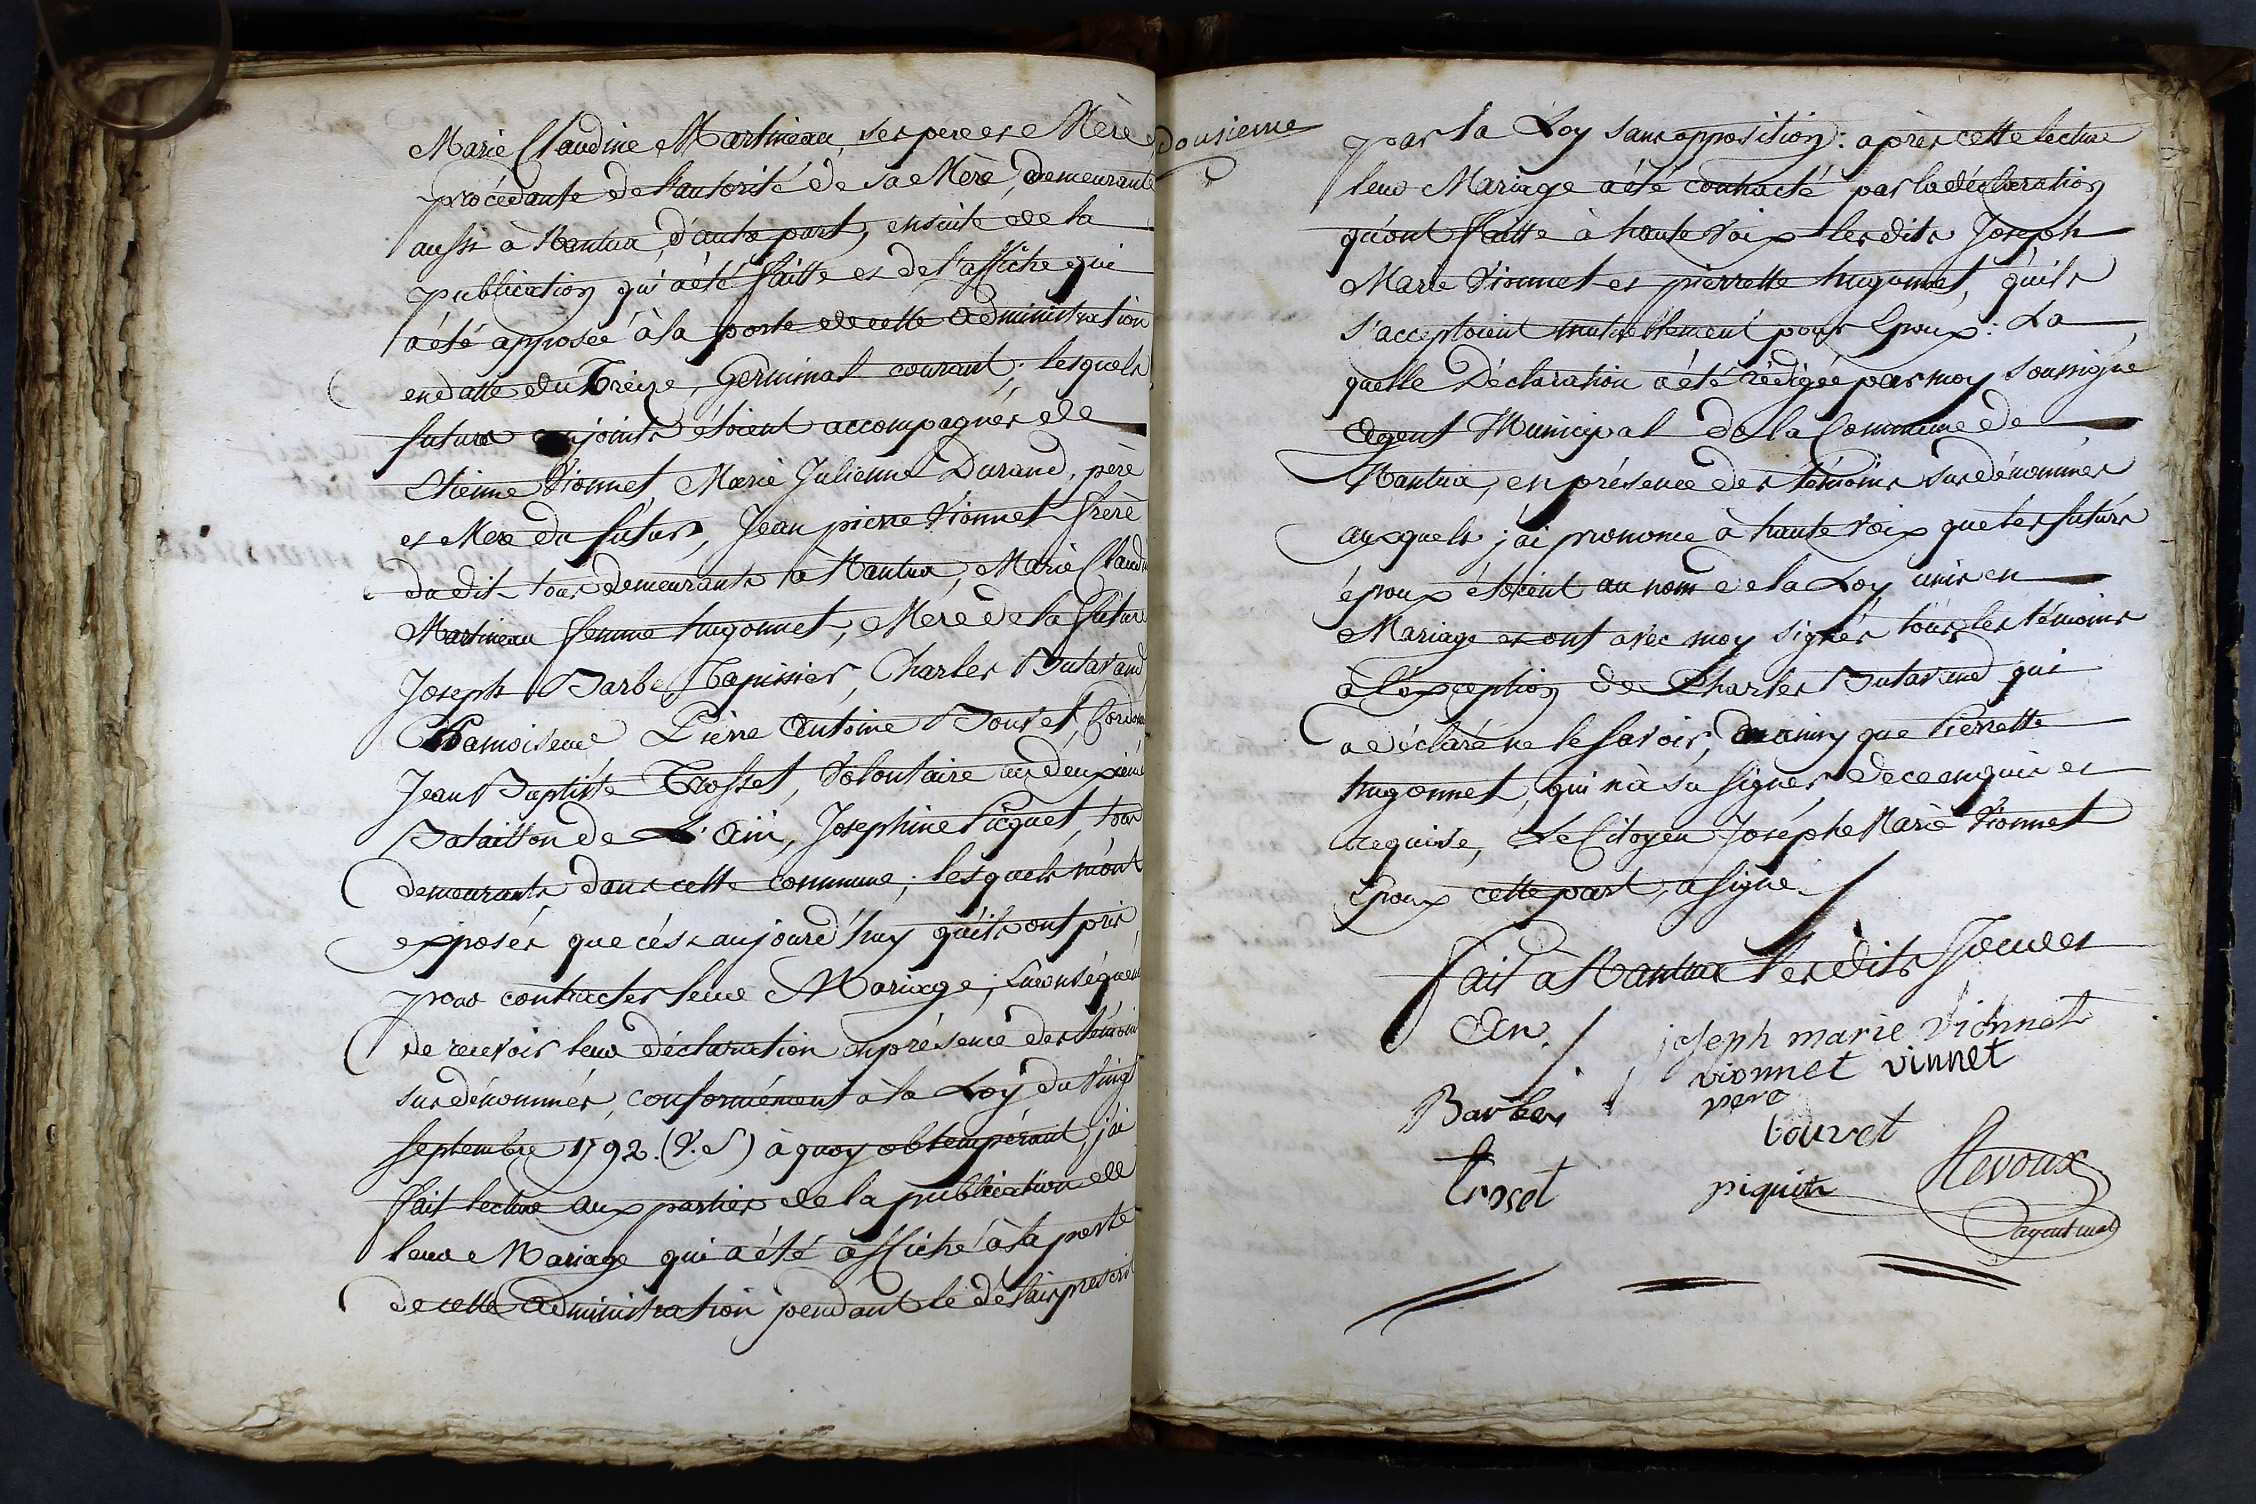 Marie Claudine Martineau, ses pere et Mère
procédante de l'autorité de sa Mère, demeurante
aussi à Nantua, d'autre part, ensuite de la
publication qui a été faitte et de l'affiche qui
a été apposée à la porte de cette administration
en datte du Treize, Germinal courant; lesquels
futurs conjoints étoient accompagnés de
Etienne Vionnet, Marie Julienne Durand, père
et Mere du futur, Jean pierre Vionnet frère
du dit tous demeurants à Nantua, Marie Claudine
Martineau femme hugonnet, Mère de la future
Joseph Barbe, Tapissier, Charles Butavand
Chamoiseur Pierre Antoine Bouvet,
Jean Baptiste Trosset, Volontaire au deuxième
Bataillon de L'Ain, Josephine Picquet, tous
demeurants dans cette commune; lesquels m'ont
exposés que c'es aujourd'huy qu'ils ont pris
pour contracter leur Mariage;
de recevoir leur déclaration en présence des témoins
sus dénommés, conformément à la Loy du Vingt
septembre 1792. (V.S) à quoy obtempérant, j'ai
fait lecture aux parties de la publication de
leur Mariage qui a été affiché à la porte
de cette administration pendant le délais prescrit
dousieme
par la Loy sans opposition: après cette lecture
leur Mariage a été contracté par la déclaration
qu'ont faitte à haute voix les dits Joseph
Marie Vionnet et pierrette hugonnet, qu'ils
s'acceptoient mutuellement pour Epoux: La
quelle Déclaration a été rédigée par moy soussigné
agent Municipal de la Commune de
Nantua, en présence des témoins sus dénommés
auxquels j'ai prononcé à haute voix que les futurs
époux étoient au nom de la Loy unis en
Mariage et ont avec moy signés tous les témoins
à l'exception de Charles Butavand qui
a déclaré ne le savoir, ainsy que Pierrette
hugonnet, qui n'a su signer de ce enquis et
requise, Le Citoyen Joséphe Marie Vionnet
Epoux cette part, a signé.
fait à Nantua les dits Jour et
An.
joseph marie vionnet
vionnet vinnet
pere
Barbe
bouvet
trosset
piquet
Revoux
agent mal